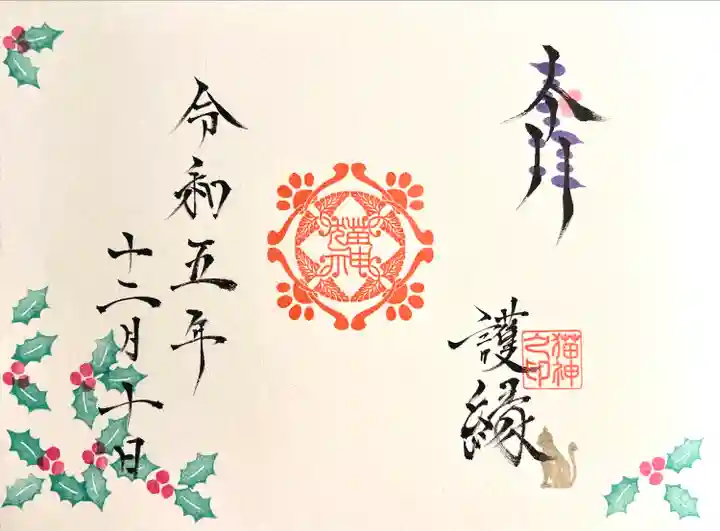 奉拝
護縁
猫神
之印
猫神
令和五年
十二月十日